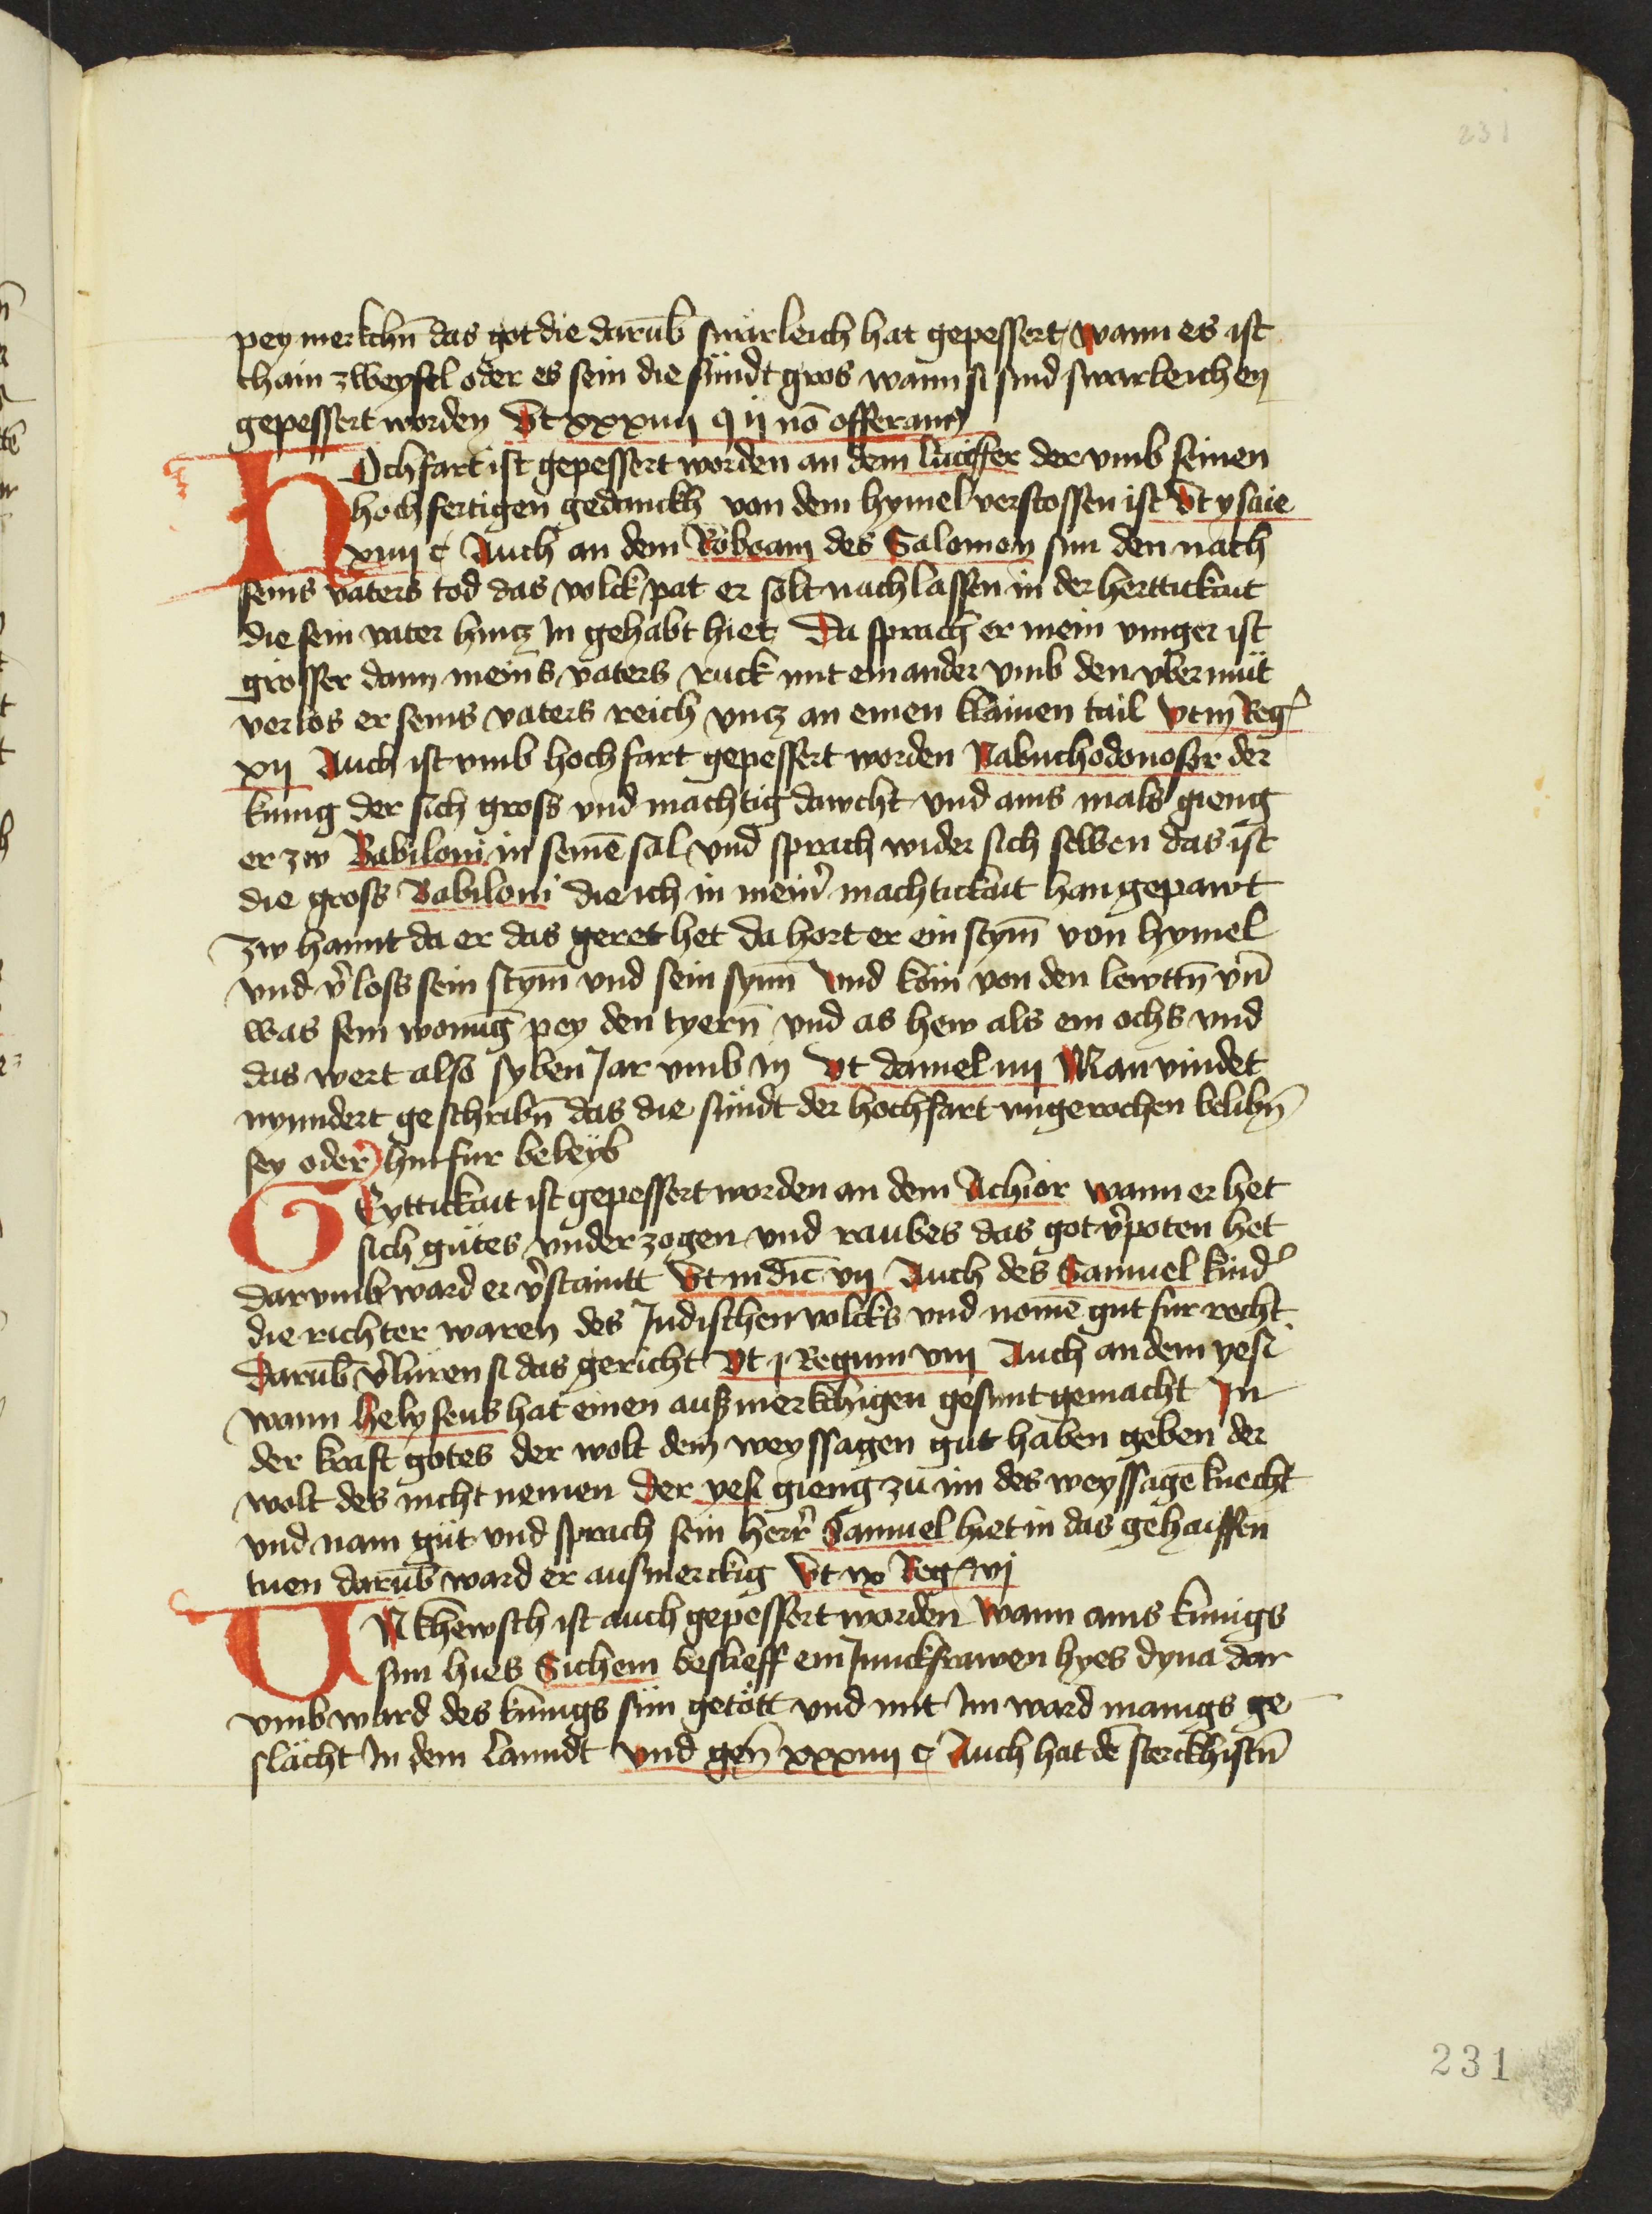 231
pey merkchn̄ das got die darūb swärleich hat gepessert wann es ist
chain zweyfel oder es sein die sündt gros wann si sind swarleichen
gepessert worden Vt xxxiiij q ij nō offerant
HOchfart ist gepessert worden an dem lucifer der vmb seinen
hochfertigen gedanckh von dem hymel verstossen ist Vt ysaie
xiiij c Auch an dem Roboam des Salomon sun den nach
seins vaters tod das volck pat er solt nachlassen in der herttickait
die sein vater hincz In gehabt hiet Da sprach er mein vinger ist
grosser dann meins vaters ruck mit einander vmb den vbermüt
verlos er seins vaters reich vncz an einen klainen tail vt iij Reg
xij Auch ist vmb hochfart gepessert worden Nabuchodonosor der
kunig der sich gross vnd mächtig dawcht vnd ains mals gieng
er zw Babiloni in seinē sal vnd sprach wider sich selben das ist
die gross Babiloni die ich in mein̉ machtickait han gepawt
zw hannt da er das geret het da hort er ein stym̄ von hymel
vnd v̉loss sein stym̄ vnd sein synn̄ vnd kom von den lewttn̄ vn̄
was sein wonūg pey den tyern̄ vnd as hew als ein ochs vnd
das wert also syben Jar vmb in Vt daniel iiij Man vindet
nyndert geschribn̄ das die sündt der hochfart vngerochen belibn̄
sey oder hinfur beleyb
GEyttickait ist gepessert worden an dem Achior wann er het
sich gütes vnderzogen vnd raubes das got v̉poten het
darvmb ward er v̉staintt Vt Indic̄ vij Auch des Samuel kind
die richter waren des Judischen volcks vnd nomē gut fur recht
Darūb v̉luren si das gericht Vt j Regum viij Auch an dem yesi
wann helyseus hat einen aufzmerkchigen gesunt gemacht In
der kraft gotes der wolt dem weyssagen gut haben geben der
wolt des nicht nemen Der yesi gieng zu im des weyssagē knecht
vnd nam güt vnd sprach sein herr̉ Samuel hiet in das gehaissen
tuen darūb ward er aufmerckig Vt iiij Reg vj
VNkhewsch ist auch gepessert worden Wann ains kunigs
sun hies Sichem beslieff ein Junckfrawen hyes dyna dar
vmb ward des kunigs sün getött vnd mit Im ward manigs ge
slächt In dem lanndt vnd gen̄ xxxiiij c Auch hat dē sterckhistn̄
231